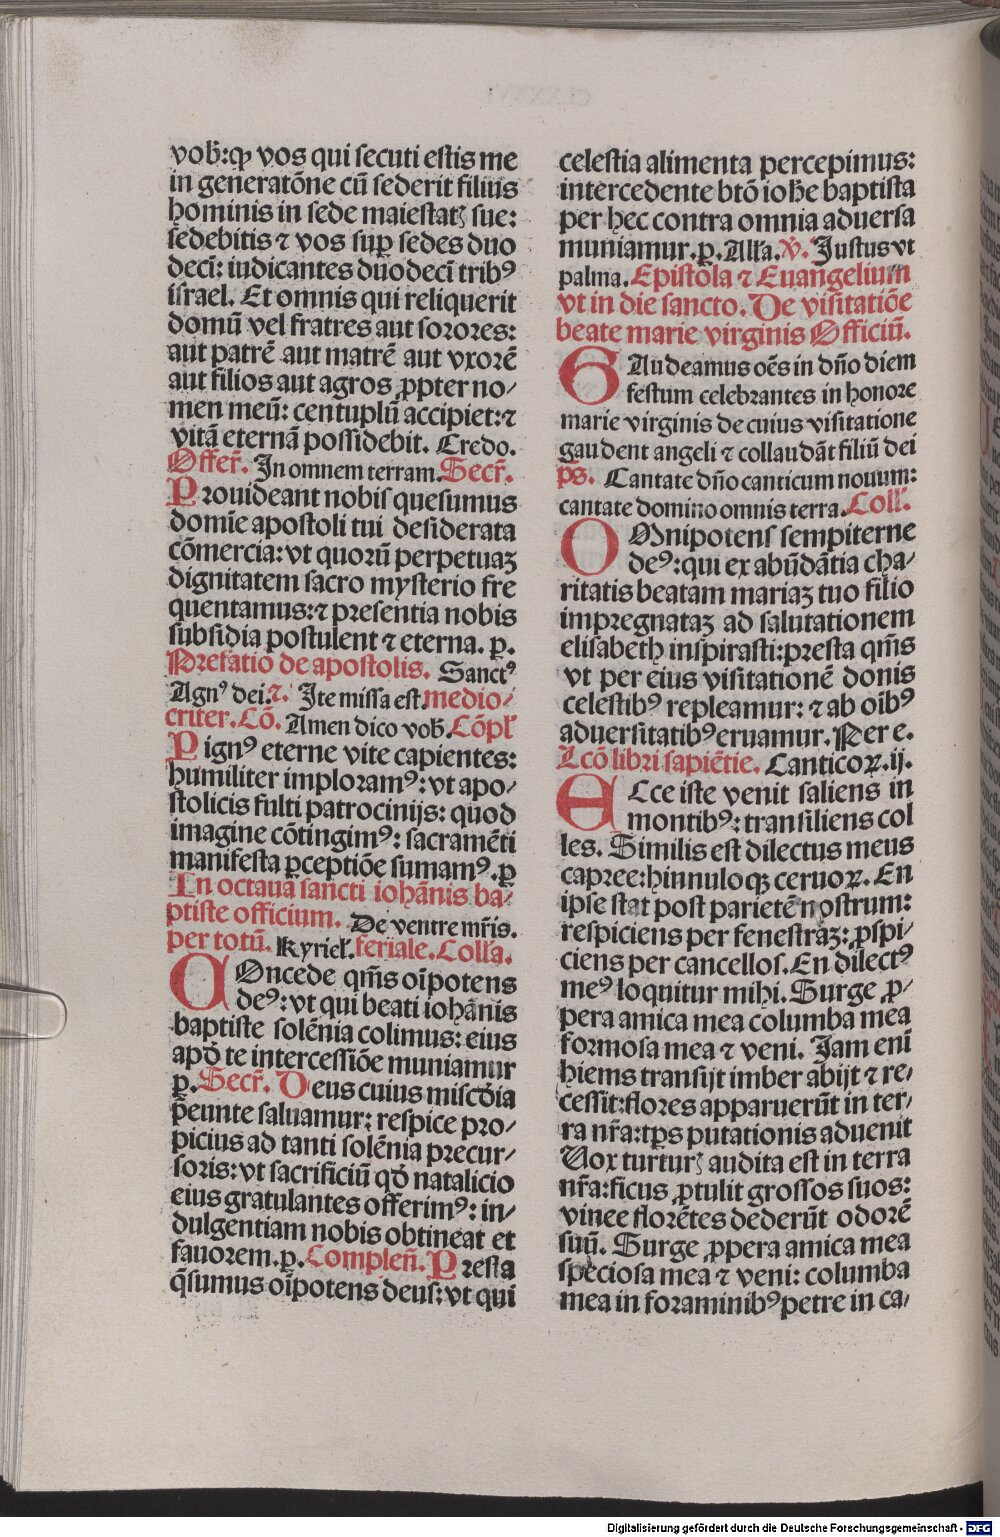 vob̄: ꝙ vos qui secuti estis me
in generatōne cū sederit filius
hominis in sede maiestatꝫ sue:
sedebitis ⁊ vos suꝑ sedes duo
decī: iudicantes duodecī tribꝰ
israel. Et omnis qui reliquerit
domū vel fratres aut sorores:
aut patrē aut matrē aut vxorē
aut filios aut agros ꝓpter no/
men meū: centuplū accipiet: ⁊
vitā eternā possidebit. Credo.
Offer̄. In omnem terram. Secr̄.
Prouideant nobis quesumus
domīe apostoli tui desiderata
cōmercia: vt quorū perpetuaꝫ
dignitatem sacro mysterio fre
quentamus: ⁊ presentia nobis
subsidia postulent ⁊ eterna. ꝑ.
Prefatio de apostolis. Sanctꝰ
Agnꝰ dei. ⁊. Ite missa est medio/
criter. Cō. Amen dico vob̄. Cōpl̄
Pignꝰ eterne vite capientes:
humiliter imploramꝰ: vt apo/
stolicis fulti patrocinijs: quod
imagine cōtingimꝰ: sacramēti
manifesta ꝑceptiōe sumamꝰ. ꝑ
In octaua sancti iohānis ba/
ptiste officium. De ventre mr̄is.
per totū. Kyriel̄. feriale. Coll̄a.
COncede qm̄s oīpotens
deꝰ: vt qui beati iohānis
baptiste solēnia colimus: eius
apd̄ te intercessiōe muniamur
ꝑ. Secr̄. Deus cuius miscd̄ia
p̄eunte saluamur: respice pro/
picius ad tanti solēnia precur/
soris: vt sacrificiū qd̄ natalicio
eius gratulantes offerimꝰ: in/
dulgentiam nobis obtineat et
fauorem. ꝑ. Compleñ. Presta
q̄sumus oīpotens deus: vt qui
celestia alimenta percepimus:
intercedente btō ioh̄e baptista
per hec contra omnia aduersa
muniamur. ꝑ. All̄a. v̄. Justus vt
palma. Epistola ⁊ Euangelium
vt in die sancto. De visitatiōe
beate marie virginis Officiū.
GAudeamus oēs in dn̄o diem
festum celebrantes in honore
marie virginis de cuius visitatione
gaudent angeli ⁊ collaudāt filiū dei
ps̄. Cantate dn̄o canticum nouum:
cantate domino omnis terra. Coll̄.
OMnipotens sempiterne
deꝰ: qui ex abūdātia cha/
ritatis beatam mariaꝫ tuo filio
impregnataꝫ ad salutationem
elisabeth inspirasti: presta qm̄s
vt per eius visitationē donis
celestibꝰ repleamur: ⁊ ab oībꝰ
aduersitatibꝰ eruamur. Per e.
Lcō libri sapiētie. Canticoꝝ. ij.
ECce iste venit saliens in
montibꝰ: transiliens col
les. Similis est dilectus meus
capree: hinnuloqꝫ ceruoꝝ. En
ipse stat post parietē nostrum:
respiciens per fenestraꝫ: ꝓspi/
ciens per cancellos. En dilectꝰ
meꝰ loquitur mihi. Surge ꝓ/
pera amica mea columba mea
formosa mea ⁊ veni. Jam enī
hiems transijt imber abijt ⁊ re/
cessit: flores apparuerūt in ter/
ra nr̄a: tp̄s putationis aduenit
Vox turturꝫ audita est in terra
nr̄a: ficus ꝓtulit grossos suos:
vinee florētes dederūt odorē
suū. Surge ꝓpera amica mea
speciosa mea ⁊ veni: columba
mea in foraminibꝰ petre in ca/
Digitalisierung gefördert durch die Deutsche Forschungsgemeinschaft - DFG